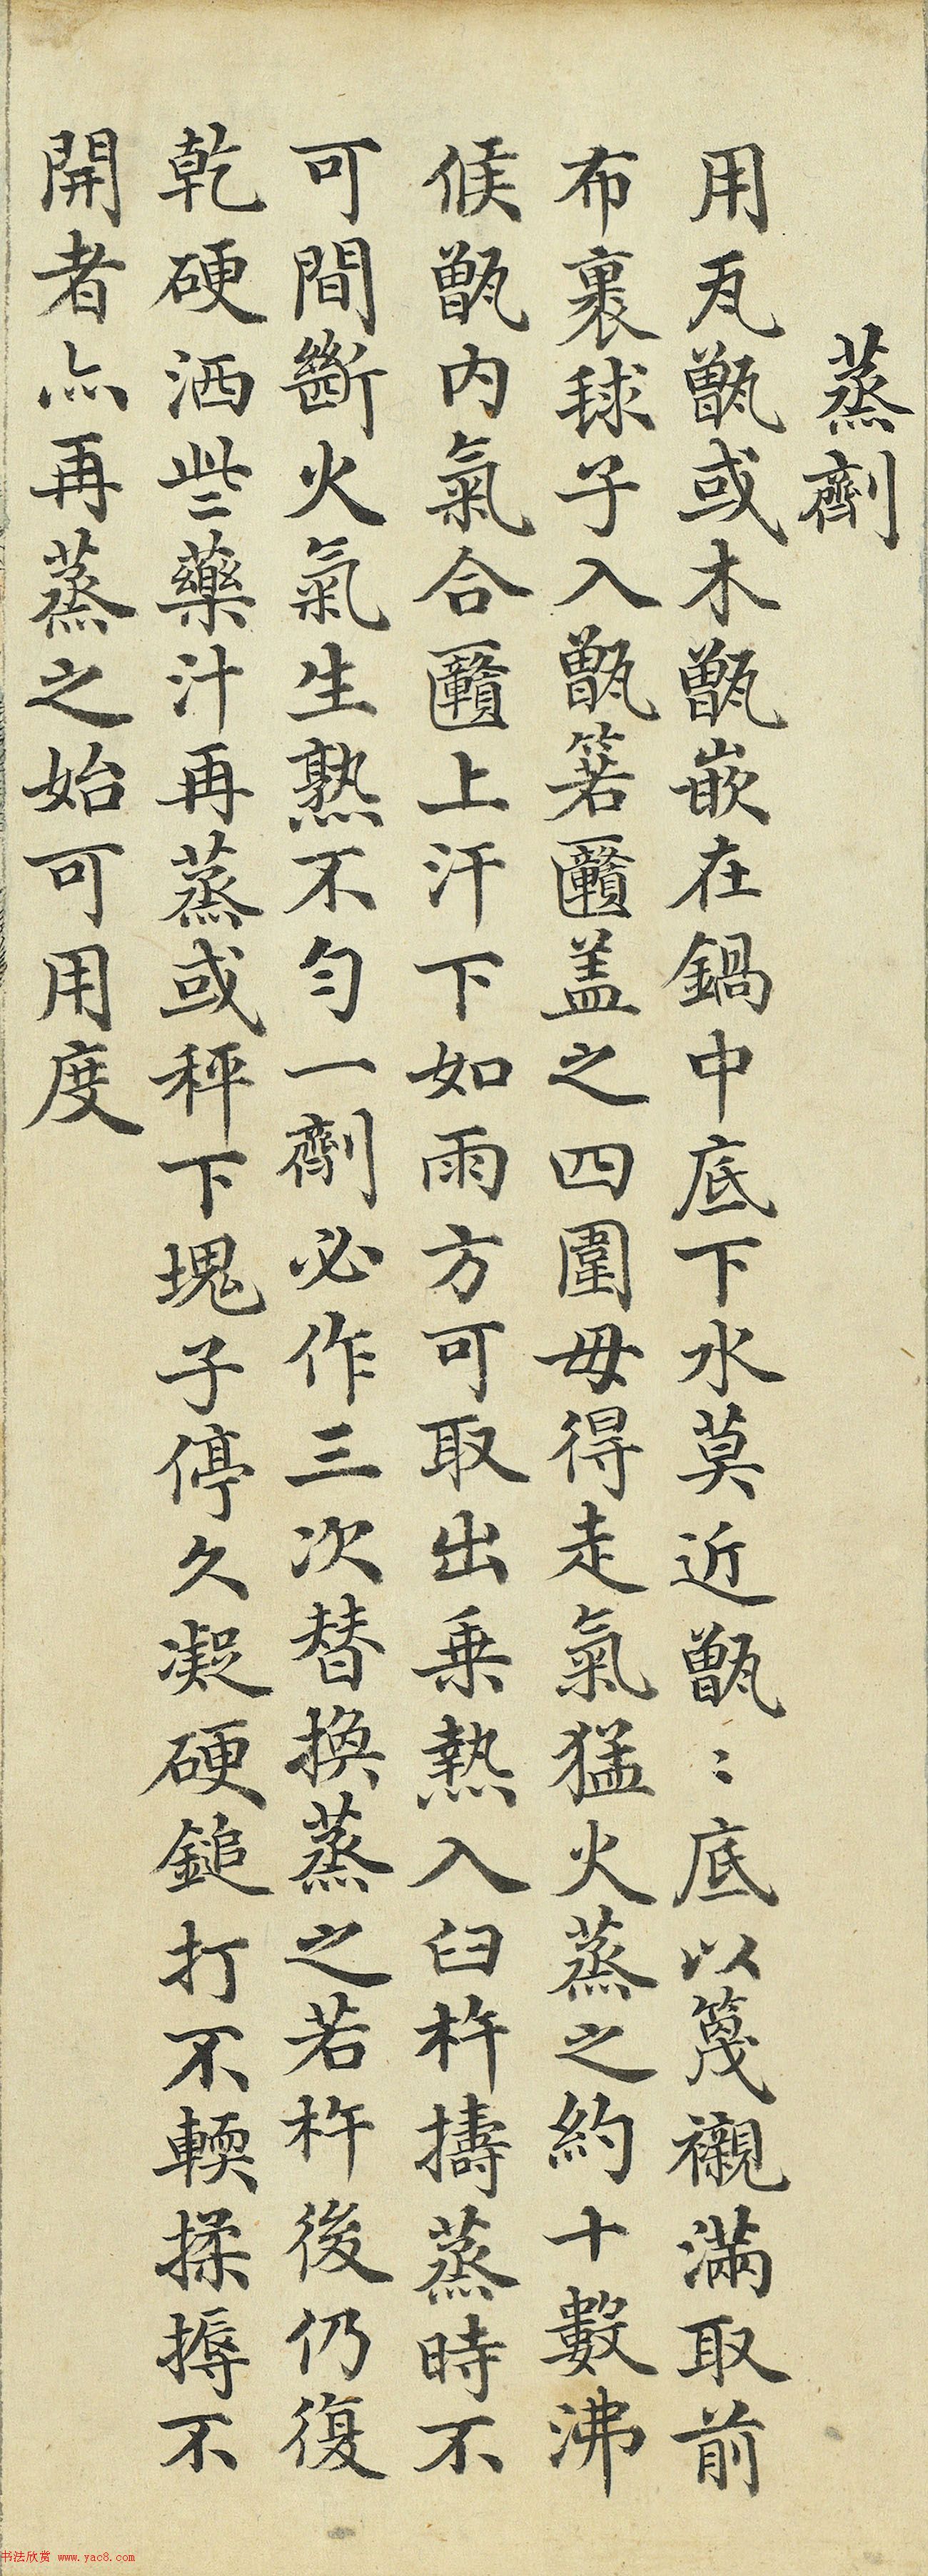 蒸劑
用瓦甑或木甑嵌在鍋中底下水莫近甑〻底以篾襯滿取前
布裹球子入甑箬匶盖之四圍毋得走氣猛火蒸之約十數沸
候甑內氣合匶上汗下如雨方可取出乗熱入臼杵擣蒸時不
可間斷火氣生熟不勻一劑必作三次替換蒸之若杵後仍復
乾硬洒些藥汁再蒸或秤下塊子停久凝硬鎚打不輭揉搙不
開者亦再蒸之始可用度
书法欣赏 www.yac8.com